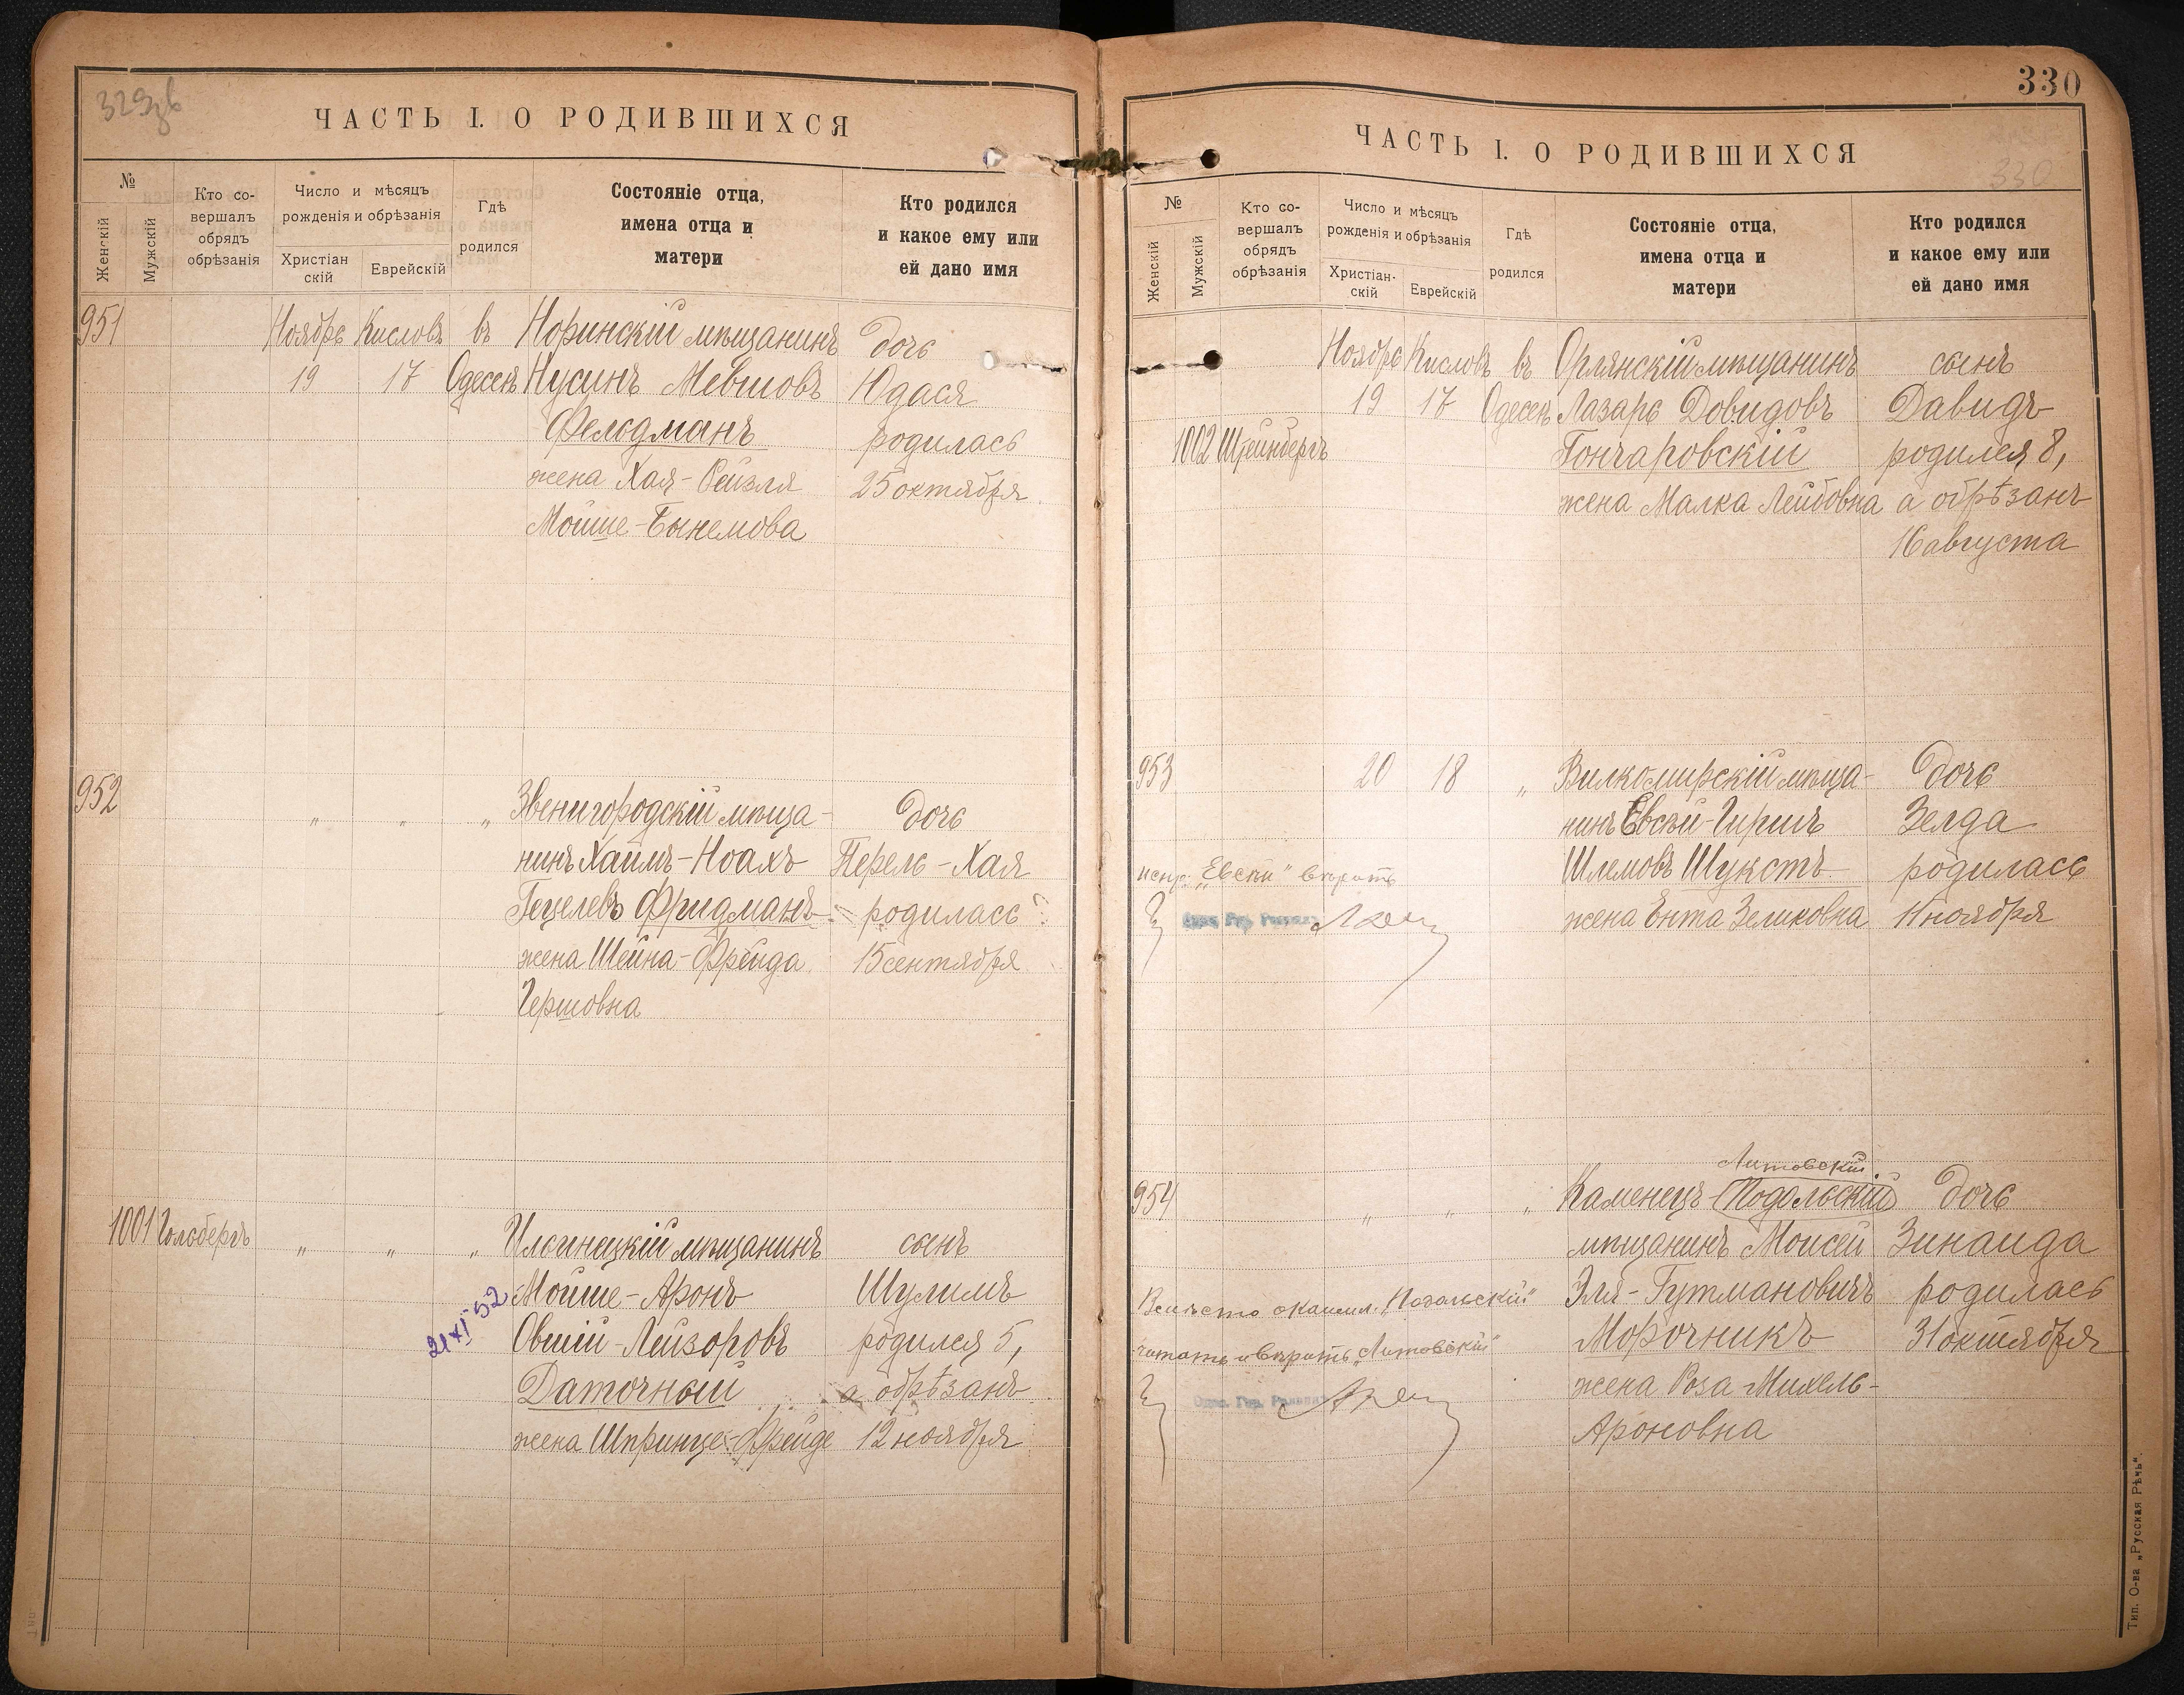 329зв
ЧАСТЬ I. О РОДИВШИХСЯ
№
Женскій
Мужскій
Кто со-
вершалъ
обрядъ
обрѣзанія
Число и мѣсяцъ
рожденія и обрѣзанія
Христіан
скій
Еврейскій
Гдѣ
родился
Состояніе отца,
имена отца и
матери
Кто родился
и какое ему или
ей дано имя
951 Ноябрь Кисловъ въ Норинскій мѣщанинъ дочь
19 17 Одессѣ Нусинъ Мевшовъ Юдася
Фельдманъ родилась
жена Хая-Рейзля 25 октября
Мойше-Бынемова
952 " " " Звенигородскій мѣща- дочь
нинъ Хаимъ-Ноахъ Перель-Хая
Гецелевъ Фридманъ родилась
жена Шейна-Фрейда 15 сентября
Гершовна
1001 Гольбергъ " " " Ильинецкій мѣщанинъ сынъ
Мойше-Аронъ Шулимъ
21 XI 52
Овшій-Лейзоровъ родился 5,
Даточный а обрѣзанъ
жена Шпринце-Фрейде 12 ноября
330
ЧАСТЬ I. О РОДИВШИХСЯ
330
№
Женскій
Мужскій
Кто со-
вершалъ
обрядъ
обрѣзанія
Число и мѣсяцъ
рожденія и обрѣзанія
Христіан-
скій
Еврейскій
Гдѣ
родился
Состояніе отца,
имена отца и
матери
Кто родился
и какое ему или
ей дано имя
Ноябрь Кисловъ въ Орлянскій мѣщанинъ сынъ
19 17 Одессѣ Лазарь Довидовъ Давидъ
1002 Штейнбергъ Гончаровскій родился 8,
жена Малка Лейбовна а обрѣзанъ
16 августа
953 20 18 " Вилкомирскій мѣща- дочь
нинъ Евсѣй-Гиршъ Зелда
испр. „Евсѣй" вѣрить Шлемовъ Шукстъ родилась
жена Ента Зеликовна 11 ноября
Литовскій
954 " " " Каменецъ-Подольскій дочь
мѣщанинъ Моисей Зинаида
Вмѣсто окаймл. „Подольскій" Эля-Гутмановичъ родилась
читать и вѣрить „Литовскій" Морочникъ 31 октября
жена Роза Михель-
Ароновна
Тип. О-ва „Русская Рѣчь".